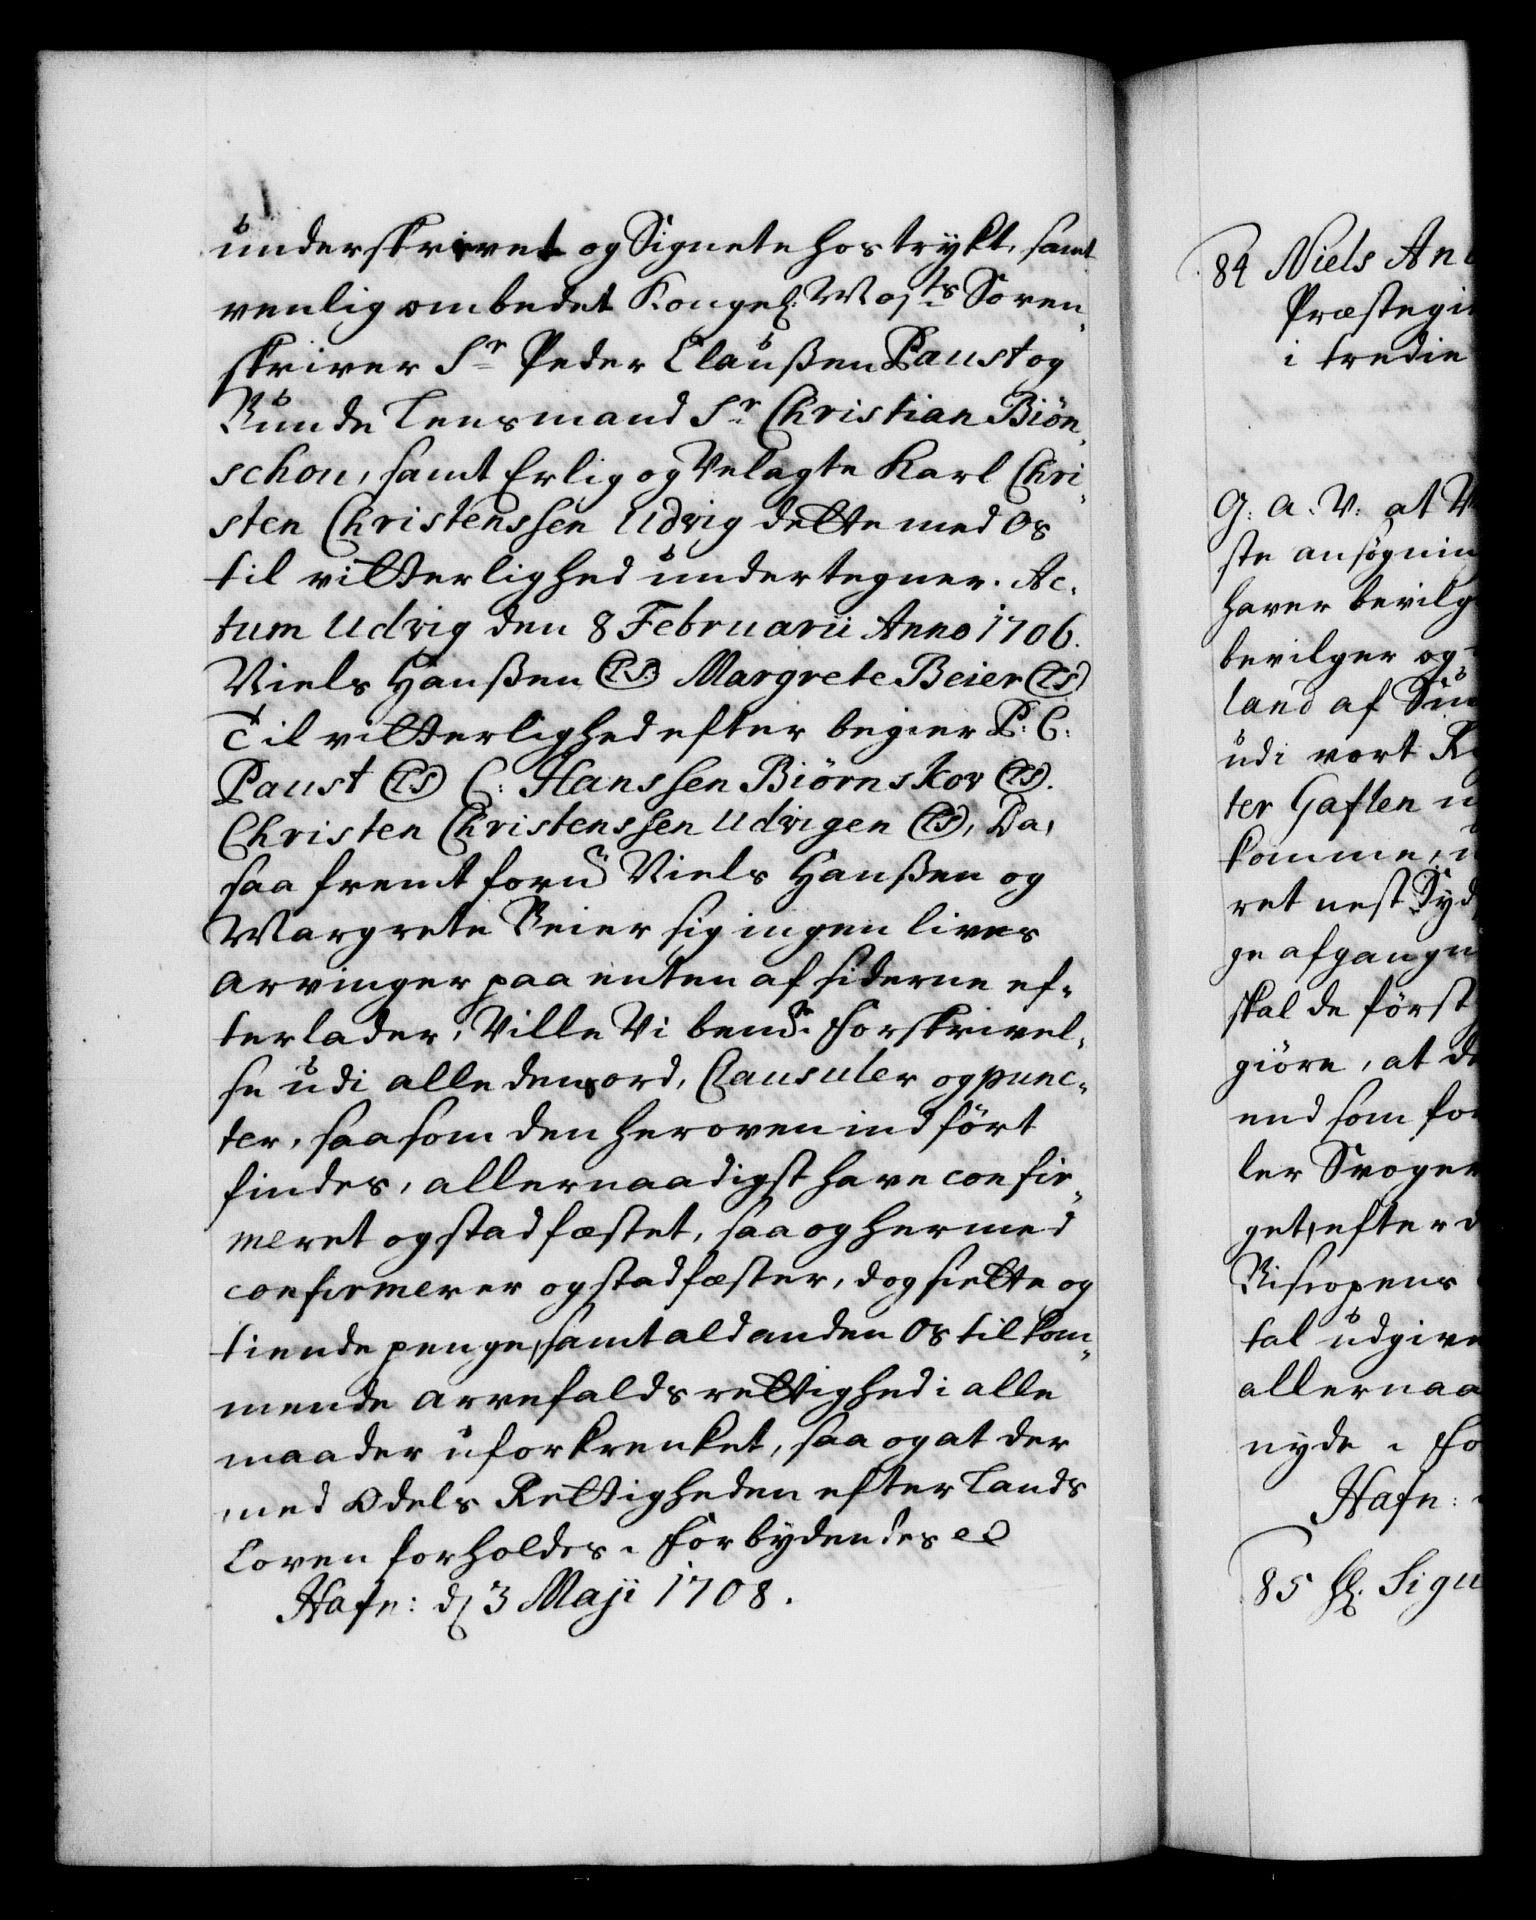 underskrevet og Signete hostrykt, samt
venlig ombedet Kongel: Maj:ts Soren-
skriver Sr Peder Claußen Paust og
Bunde Lensmand Sr Christian Biön-
schou, samt Erlig og Velagte Karl Chri-
sten Christenssen Udvig dette med Os
til vitterlighed undertegner. Ac-
tum Udvig den 8 Februarii Anno 1706.
Niels Hanßen (LS) Margrete Beier (LS)
Til vitterlighed efter begier P: C:
Paust (LS) C: Hanssen Biørnskov (LS).
Christen Christenssen Udvigen (LS), Da,
saa fremt fornd Niels Hanßen og
Margrete Beier sig ingen lives
arvinger paa enten af siderne ef-
terlader, Ville Vi bemte Forskrivel-
se udi alle dens ord, Clausuler og punc-
ter, saasom den heroven indfört
findes, allernaadigst have confir-
meret og stadfæstet, saa og hermed
confirmerer og stadfæster, dog siette og
tiende penge, samt ald anden Os tilkom-
mende arvefalds rettighed i alle
maader uforkrenket, saa og at der
med Odels Rettigheden efter Lands
Loven forholdes. Forbydendes etc
Hafn: d 3 Maji 1708.
84 Niels An
Præstegi
i tredie
G: A: V: at V
ste ansøgnin
haver bevilg
bevilger og
land af Sun
udi vort R
ter Gaflen
komme,
ret nest Syd
ge afgangn
skal de först
giöre, at d
end som for
ler Svoger
get, efter
Biscopens
tal udgive
allernaa
nyde. Fo
Hafn:
85 Sign